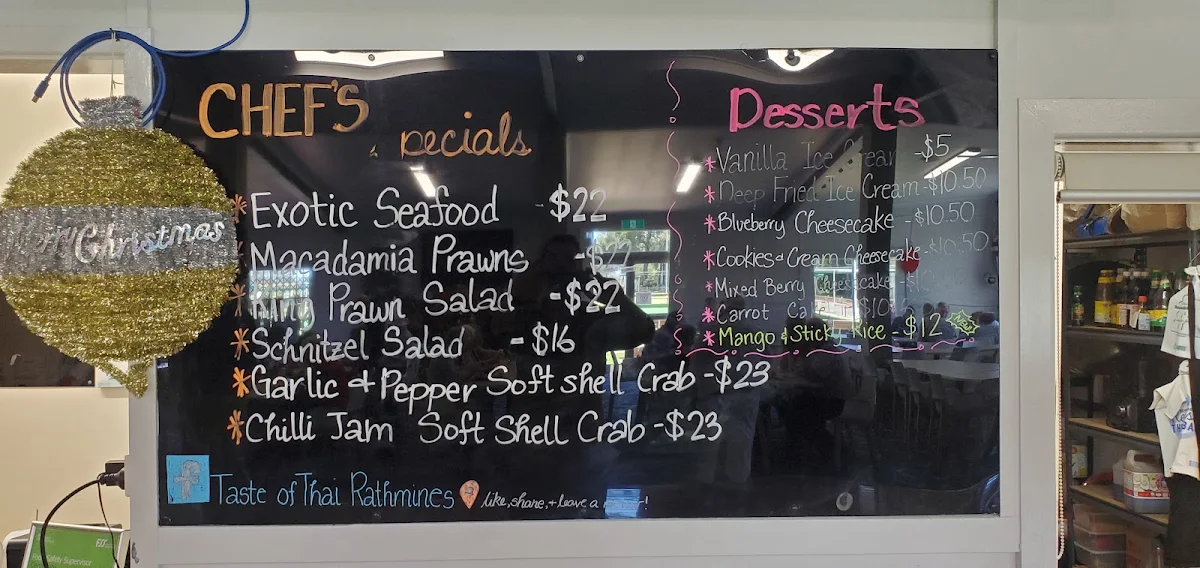 CHEF'S
Specials
* Exotic Seafood - $22
* Macadamia Prawns - $22
* King Prawn Salad - $22
* Schnitzel Salad - $16
* Garlic & Pepper Soft shell Crab - $23
* Chilli Jam Soft Shell Crab - $23
Taste of Thai Rathmines like, share, + leave a
Desserts
* Vanilla Ice Cream - $5
* Deep Fried Ice Cream - $10.50
* Blueberry Cheesecake - $10.50
* Cookies & Cream Cheesecake - $10.50
* Mixed Berry Cheesecake
* Carrot Cake $10
* Mango & Sticky Rice - $12
Christmas
Safety Supervisor